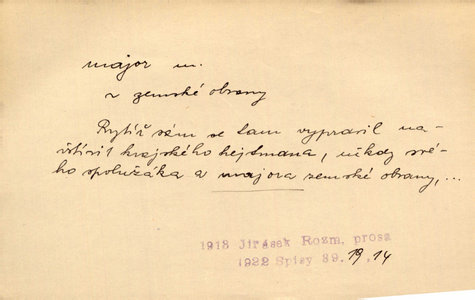 major m.
v zemské obrany
Rytíř sám se tam vypravil na-
vštívit krajského hejtmana, někdy své-
ho spolužáka a majora zemské obrany, ...
1918 Jirásek Rozm. prosa
1922 Spisy 39. 19, 14